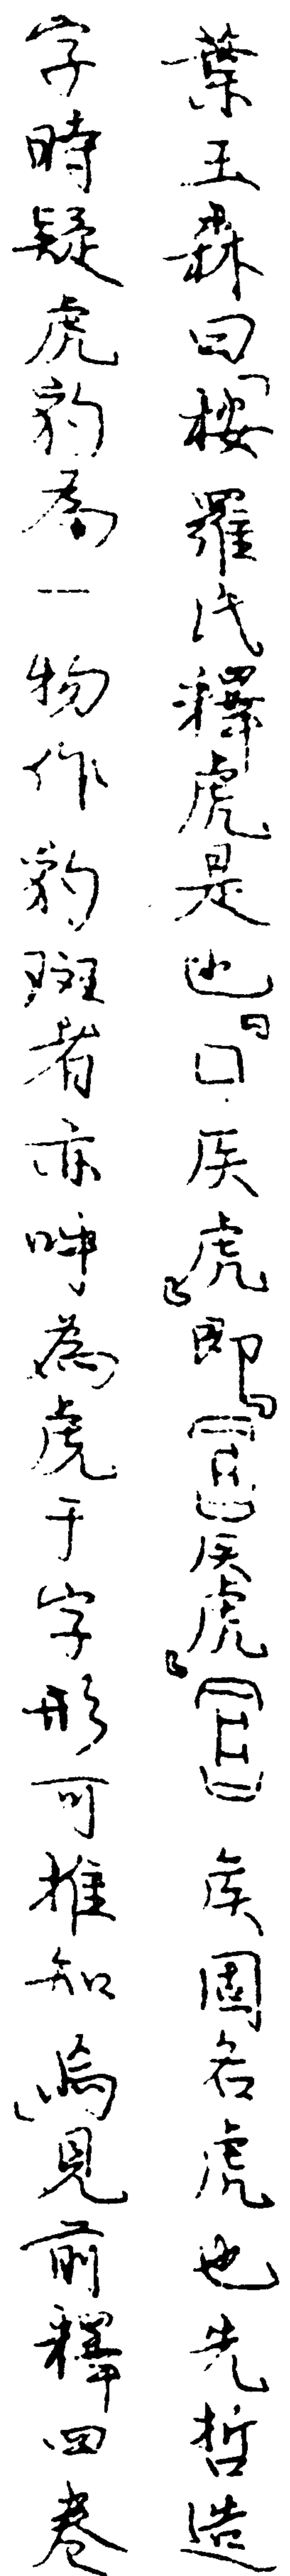 葉玉森曰「桉羅氏釋虎是也『囗侯虎』即『侯虎』侯固名虎也先哲造
字時疑虎豹為一物作豹斑者亦呼為虎于字形可推知焉」見前釋四卷